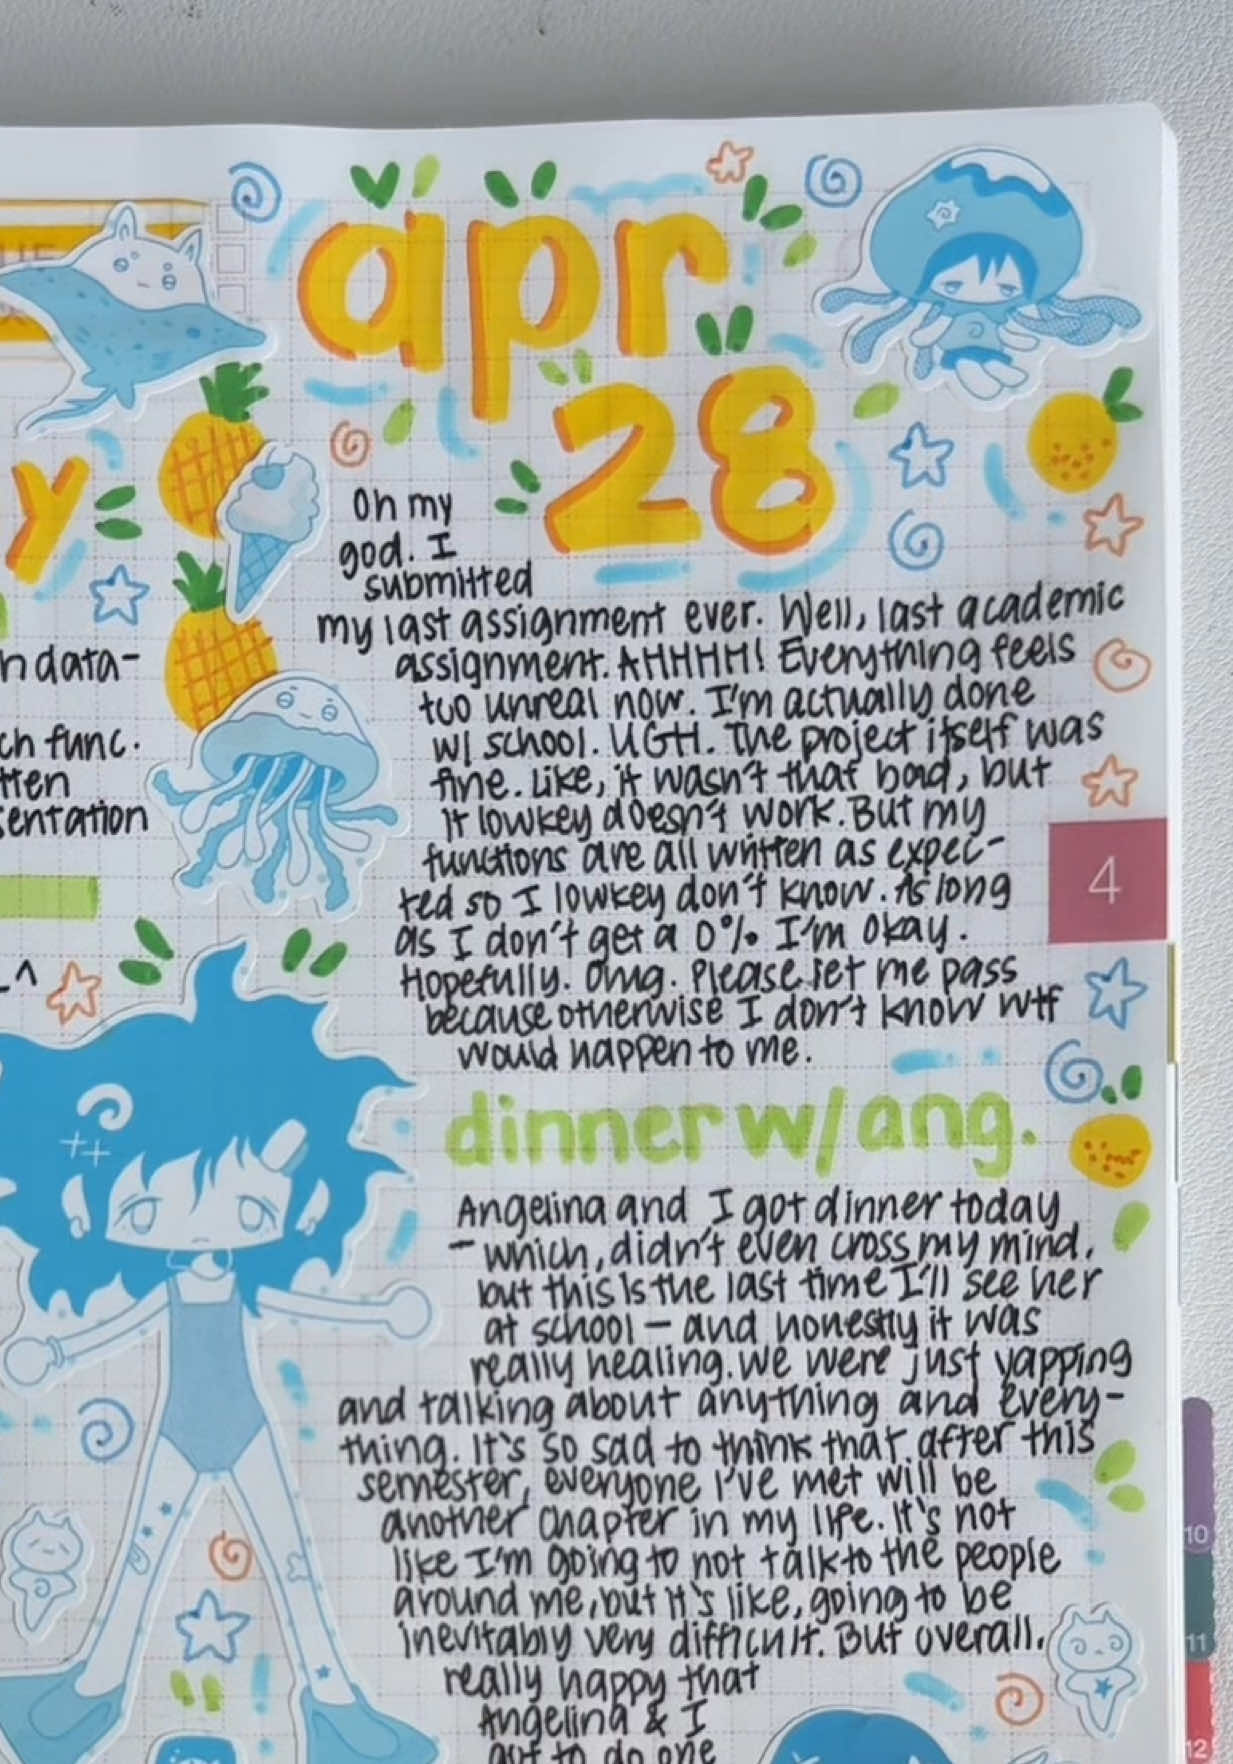 y
n data-
ch func.
tten
sentation
apr
28
Oh my
god. I
submitted
my last assignment ever. Well, last academic
assignment. AHHHH! Everything feels
too unreal now. I'm actually done
w/ school. UGH. The project itself was
fine. Like, it wasn't that bad, but
it lowkey doesn't work. But my
functions are all written as expec-
ted so I lowkey don't know. As long
as I don't get a 0%. I'm okay.
Hopefully. Omg. Please let me pass
because otherwise I don't know wtf
would happen to me.
4
dinner w/ ang.
Angelina and I got dinner today
- which, didn't even cross my mind,
but this is the last time I'll see her
at school - and honestly it was
really healing. We were just yapping
and talking about anything and every-
thing. It's so sad to think that after this
semester, everyone I've met will be
another chapter in my life. It's not
like I'm going to not talk to the people
around me, but it's like, going to be
inevitably very difficult. But overall,
really happy that
Angelina & I
got to do one
10
11
12